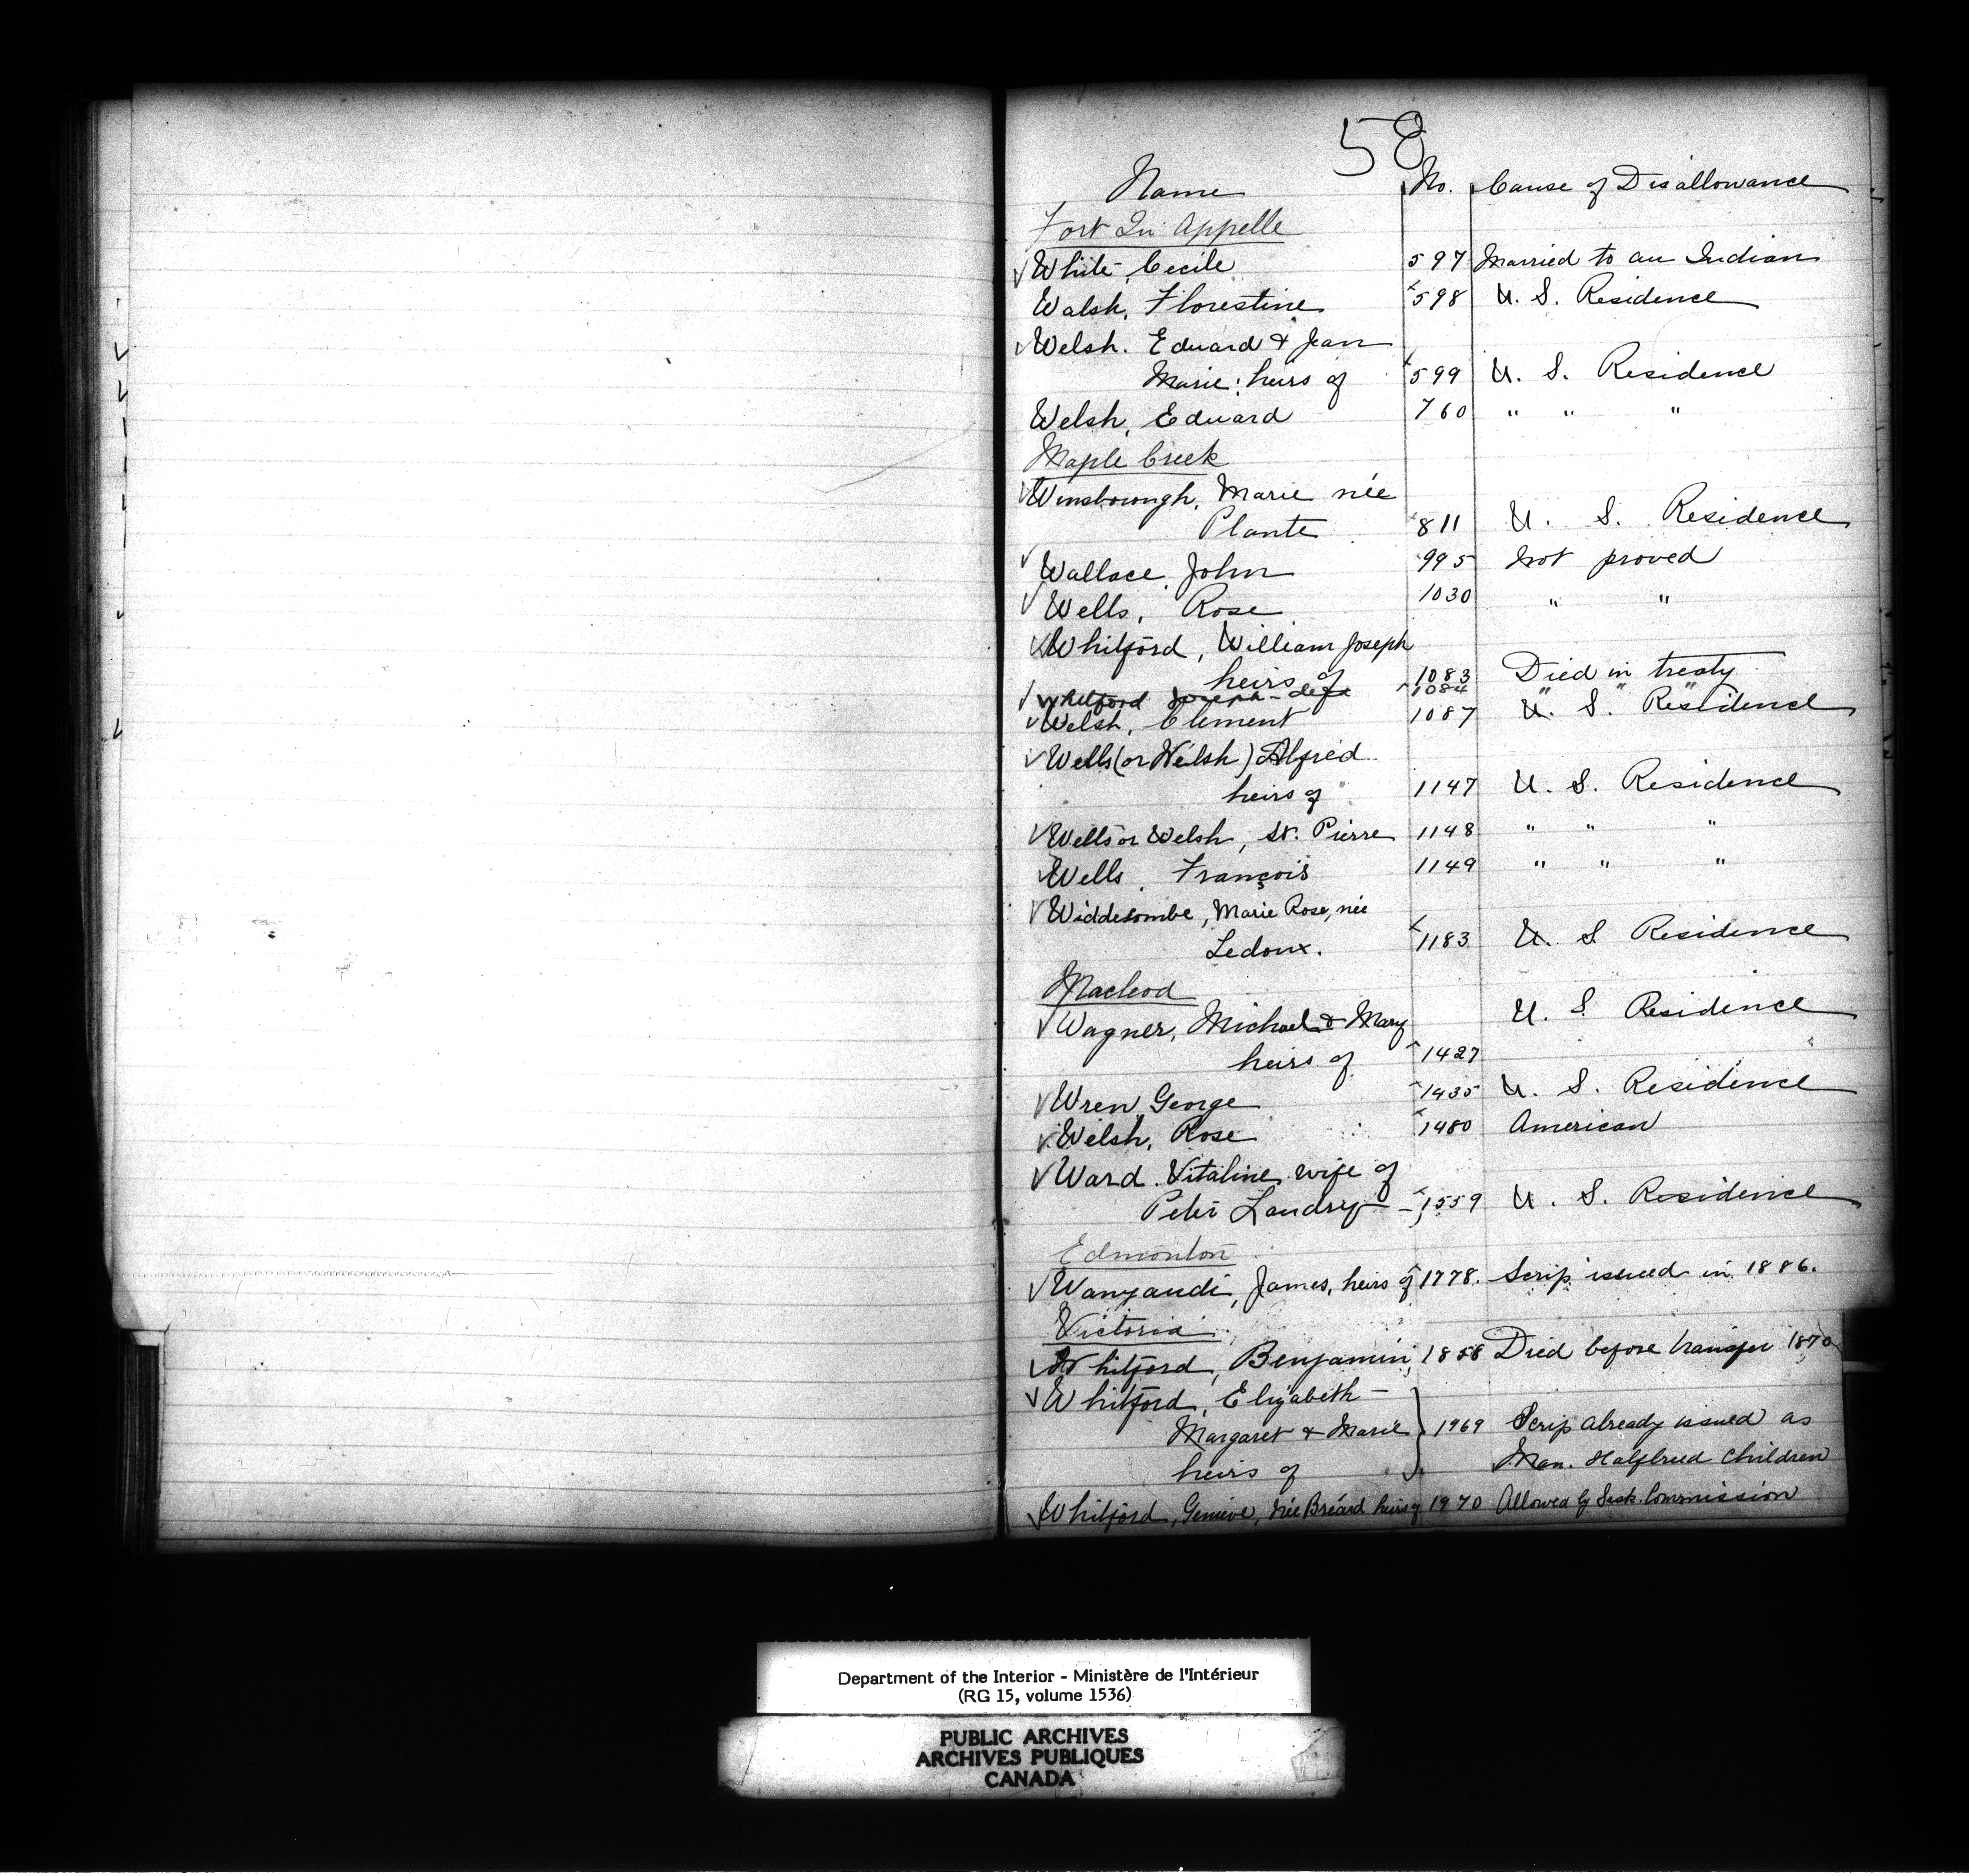 58
Name No. Cause of Disallowance
Fort Qu'Appelle
White, Cecile 597 Married to an Indian
Walsh, Florestine 598 U. S. Residence
Welsh. Edward & Jean
Marie: heirs of 599 U. S. Residence
Welsh, Edward 760 " " "
Maple Creek
Winsborough, Marie née
Plante 811 U. S. Residence
Wallace, John 995 Not proved
Wells, Rose 1030 " "
Whitford, William Joseph
heirs of 1083 Died in treaty
Whitford Joseph - 1084 " " "
Welsh, Clement 1087 U. S. Residence
Wells (or Welsh) Alfred
heirs of 1147 U. S. Residence
Wells or Welsh, St. Pierre 1148 " " "
Wells, François 1149 " " "
Widdecombe, Marie Rose, née
Ledoux. 1183 U. S Residence
Macleod
Wagner, Michael & Mary U. S Residence
heirs of 1427
Wren, George 1435 U. S. Residence
Welsh, Rose 1480 American
Ward. Vitaline, wife of
Peter Landry - 1559 U. S. Residence
Edmonton
Wanyandi, James, heirs of 1778. Scrip issued in 1886.
Victoria
Whitford, Benjamin, 1858 Died before transfer 1870
Whitford, Elizabeth -
Margaret & Marie 1969 Scrip already issued as
heirs of Man. Halfbreed Children
Whitford, Genieve, née Breard heirs of 1970 Allowed by Sask. Commission
Department of the Interior - Ministère de l'Intérieur
(RG 15, volume 1536)
PUBLIC ARCHIVES
ARCHIVES PUBLIQUES
CANADA